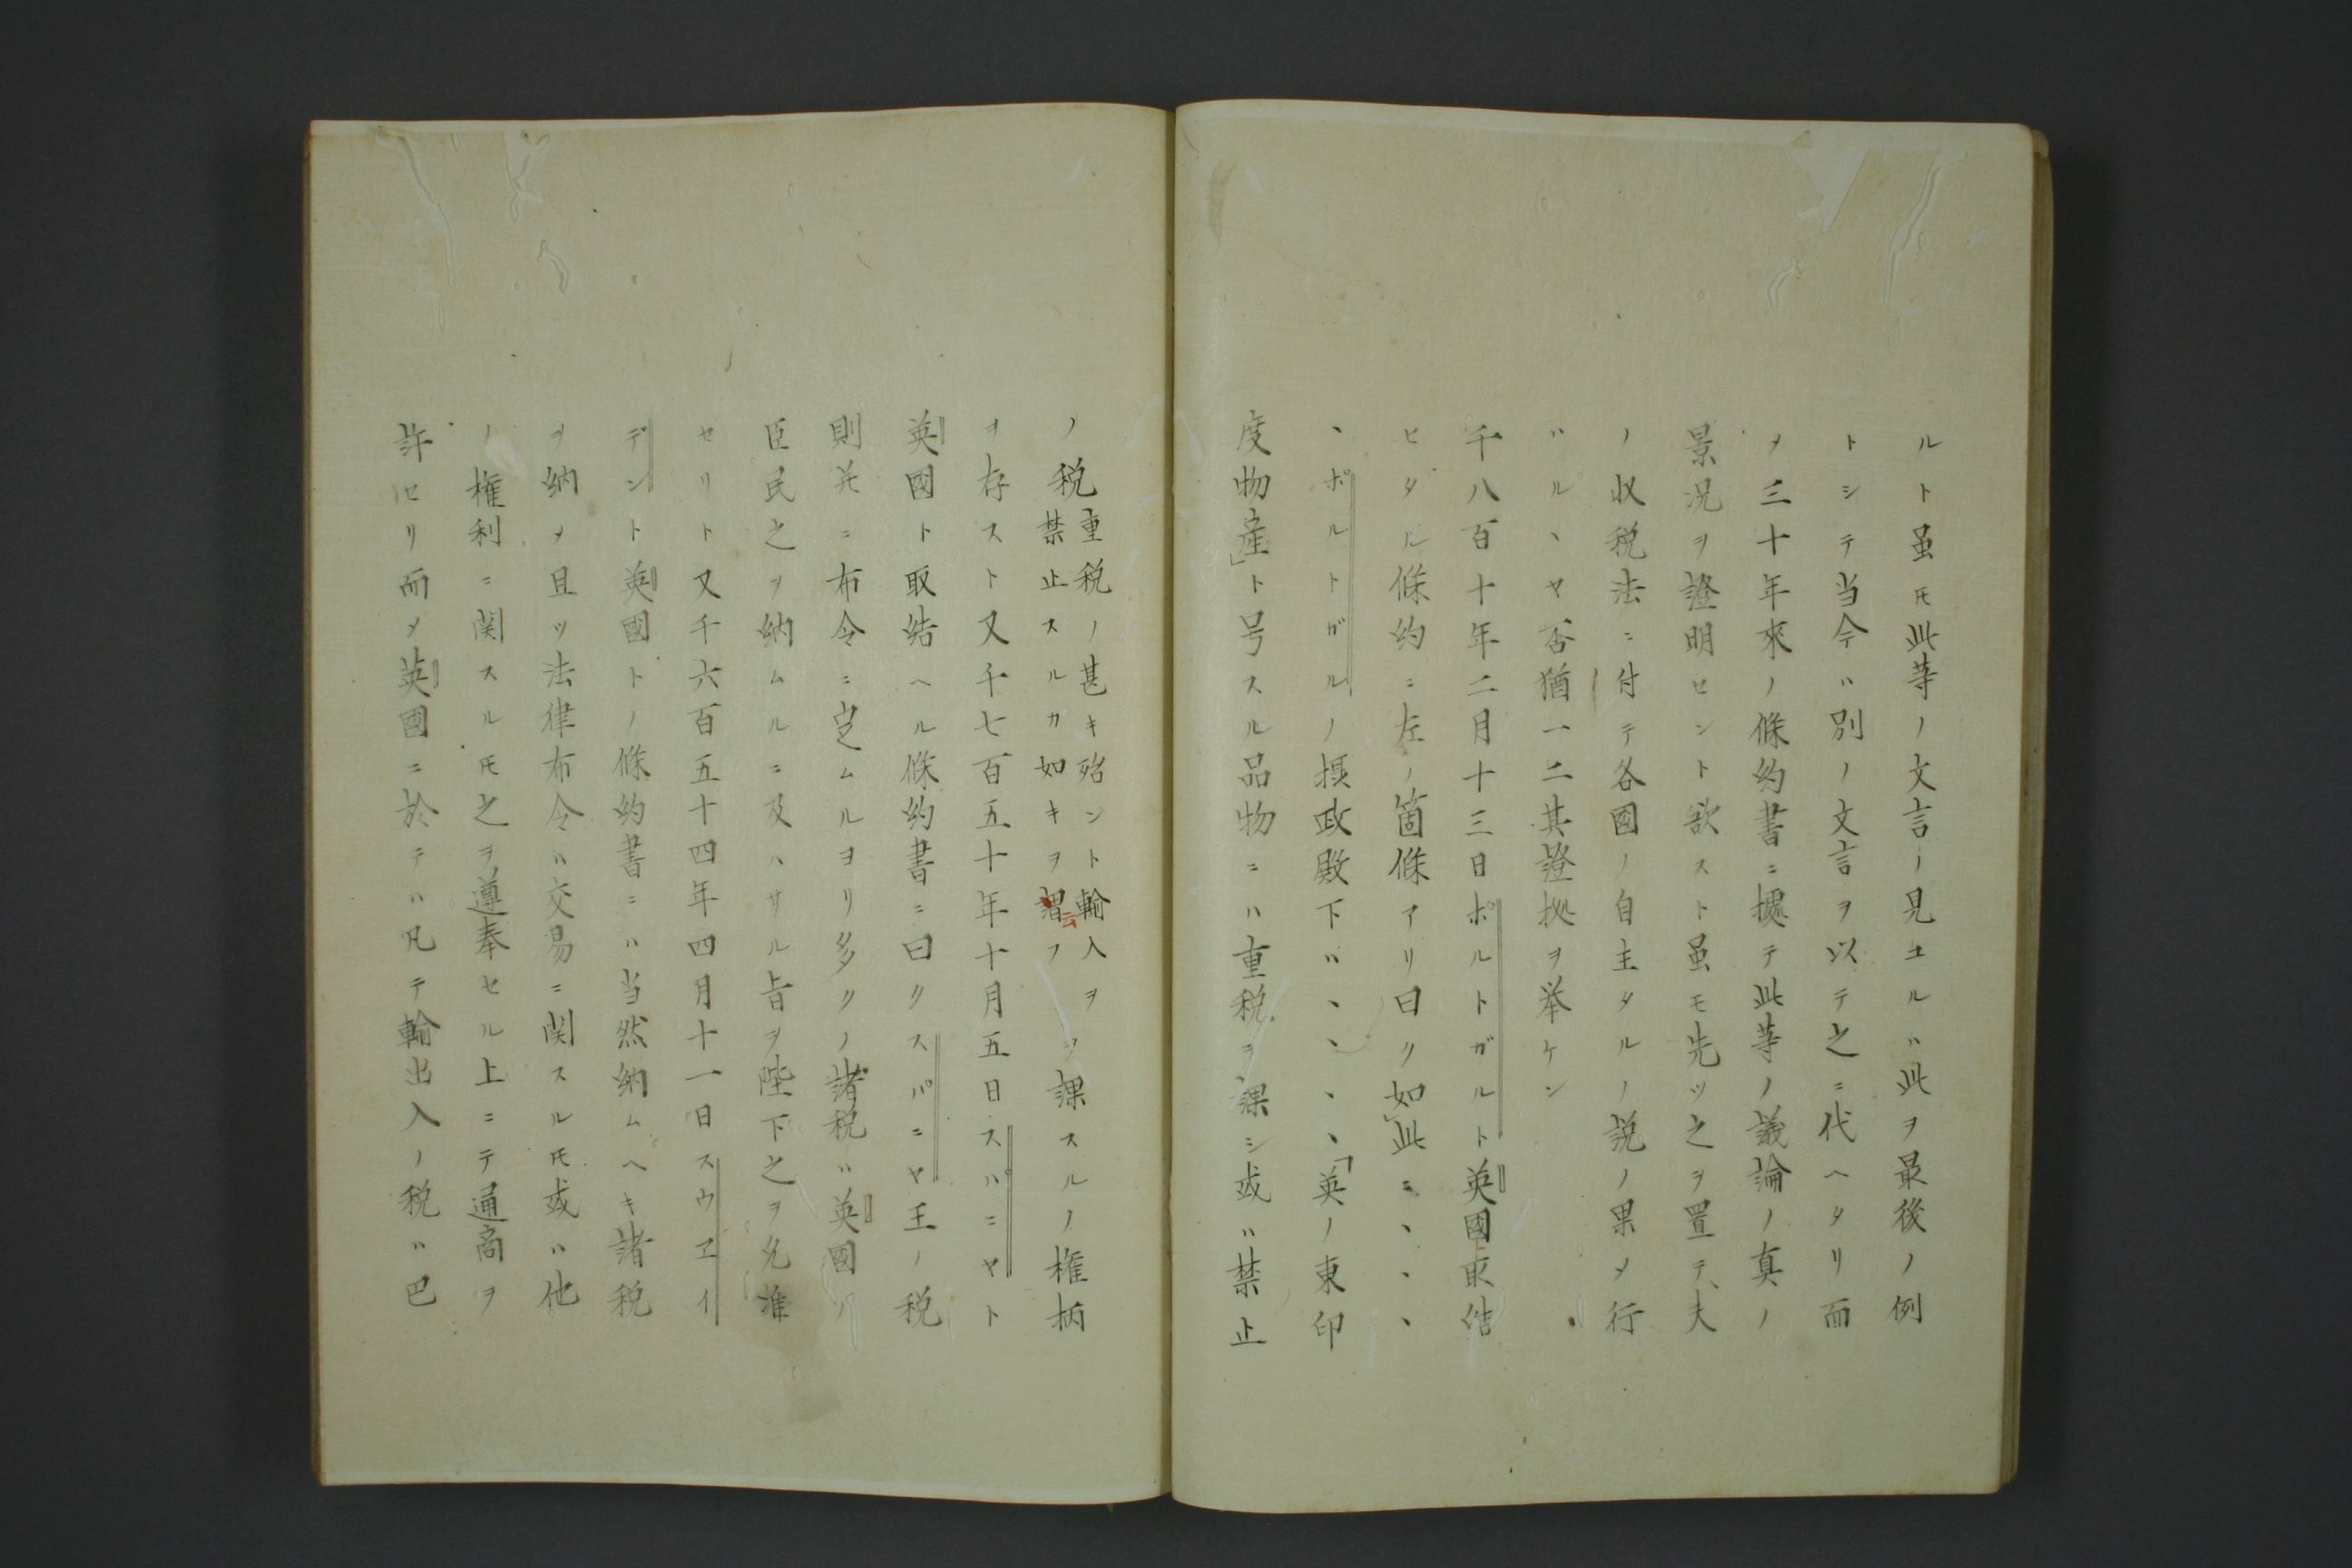 ルト虽𪜈此等ノ文言ノ見ユルハ此ヲ最後ノ例
トシテ当今ハ別ノ文言ヲ以テ之ニ代ヘタリ而
ヲ三十年來ノ條約書ニ據テ此等ノ議論ノ真ノ
景况ヲ證明セント欲スト虽モ先ツ之ヲ置テ夫
ノ収税法ニ付テ各國ノ自主タルノ説ノ果メ行
ハルヽヤ否猶一二其證拠ヲ挙ケン
千八百十年二月十三日ポルトガルト英國取結
ヒタル條約ニ左ノ箇條アリ曰ク如此ニヽヽヽ
ヽポルトガルノ摂政殿下ハヽヽヽヽ「英ノ東印
度物産」ト号スル品物ニハ重税ヲ課シ或ハ禁止
ノ税重税ノ甚キ殆ント輸入ヲ禁止スルカ如キヲ謂フヲ課スルノ権柄
ヲ存スト又千七百五十年十月五日スパニヤト
英國ト取結ヘル條約書ニ曰クスパニヤ王ノ税
則并ニ布令ニ定ムルヨリ多クノ諸税ハ英國ノ
臣民之ヲ納ムルニ及ハサル旨ヲ陛下之ヲ允准
セリト又千六百五十四年四月十一日スウエイ
デント英國トノ條約書ニハ当然納ムヘキ諸税
ヲ納メ且ツ法律布令ハ交易ニ関スル𪜈或ハ他
ノ権利ニ関スル𪜈之ヲ遵奉セル上ニテ通商ヲ
許セリ而メ英國ニ於テハ凡テ輸出入ノ税ハ巴